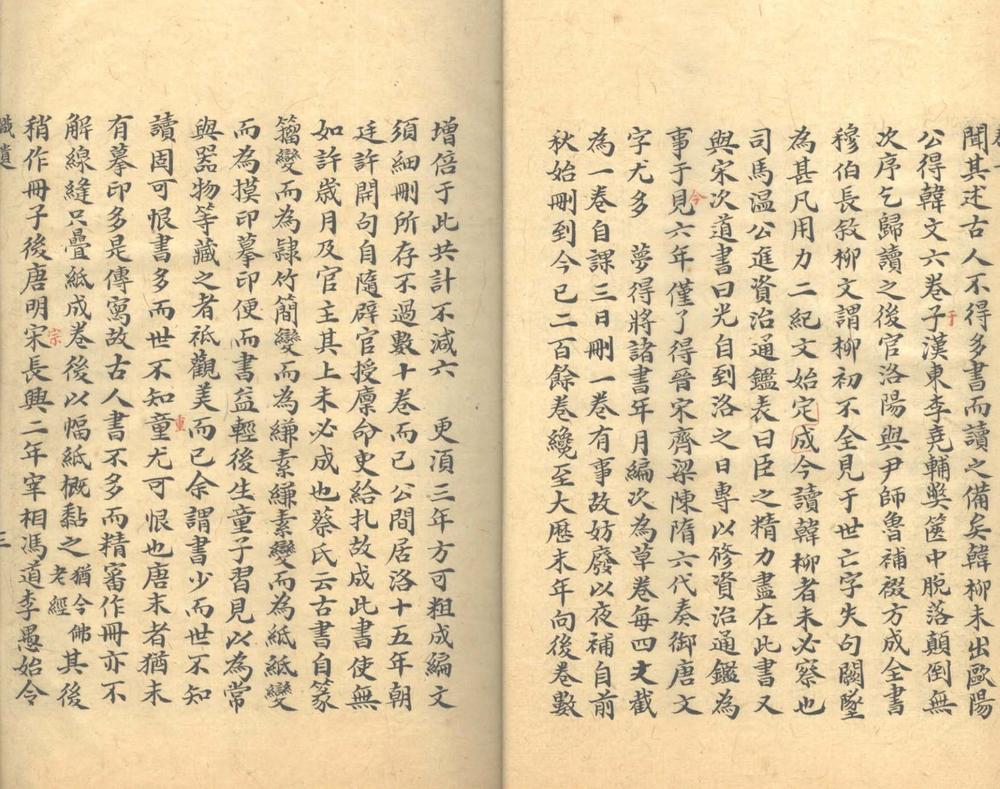 聞其述古人不得多書而讀之備矣韓柳未出歐陽
公得韓文六卷子漢東李堯輔獘篋中脫落顛倒無
于
次序乞歸讀之後官洛陽與尹師魯補綴方成全書
穆伯長敘柳文謂柳初不全見于世亡字失句闕墜
為甚凡用力二紀文始定成今讀韓柳者未必察也
司馬温公進資治通鑑表曰臣之精力盡在此書又
與宋次道書曰光自到洛之日專以修資治通鑑為
事于見六年僅了得晉宋齊梁陳隋六代奏御唐文
今
字尤多 夢得將諸書年月編次為草卷每四文截
為一卷自課三日刪一卷有事故妨廢以夜補自前
秋始刪到今已二百餘卷纔至大歷末年向後卷數
增倍于此共計不減六 更湏三年方可粗成編文
須細刪所存不過數十卷而已公間居洛十五年朝
廷許開句自隨辟官授廪命史給扎故成此書使無
如許歲月及官主其上未必成也蔡氏云古書自篆
籀變而為隷竹簡變而為縑素縑素變而為紙紙變
而為摸印摹印便而書益輕後生童子習見以為常
與器物等藏之者祗觀美而已余謂書少而世不知
讀固可恨書多而世不知童尤可恨也唐末者猶未
重
有摹印多是傳寫故古人書不多而精審作冊亦不
解線縫只疊紙成卷後以幅紙概黏之猶今佛老經其後
稍作冊子後唐明宋長興二年宰相馮道李愚始令
宗
三